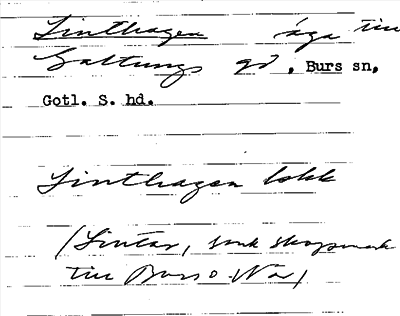 Linthagen äga till
Galtungs gd, Burs sn,
Gotl. S. hd.
Linthagen lokk
(Lintar, smk skogsmark
till Burs o. När)